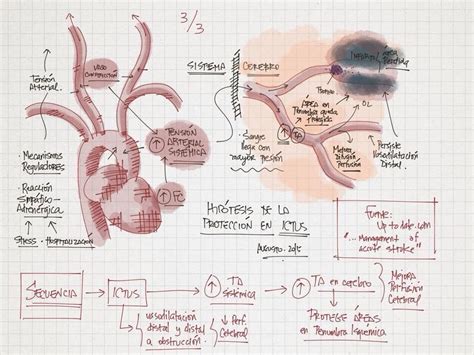 3/3
VASO
CONSTRICCIÓN
TENSIÓN
ARTERIAL
SISTEMA
CEREBRO
ÁREA
PERDIDA
TROMBO
ÁREA EN
PENUMBRA
OL
TENSIÓN
ARTERIAL
SISTÉMICA
- SANGRE
LLEGA CON
MAYOR PRESIÓN
TA
MEJORA
DIFUSIÓN
PERFUSIÓN
PERSISTE
VASODILATACIÓN
DISTAL.
- MECANISMOS
REGULADORES
- REACCIÓN
SIMPÁTICO -
ADRENÉRGICA
STRESS - HOSPITALIZACIÓN
FC
HIPÓTESIS DE LA
PROTECCIÓN EN ICTUS
AGOSTO. 2015
FUENTE:
Up to date.com
"... Management of
acute stroke"
SECUENCIA
ICTUS
TA
SISTÉMICA
TA en CEREBRO
MEJORA
PERFUSIÓN
CEREBRAL
VASODILATACIÓN
DISTAL y DISTAL
A OBSTRUCCIÓN.
PERF.
CEREBRAL
PROTEGE ÁREAS
EN PENUMBRA ISQUÉMICA